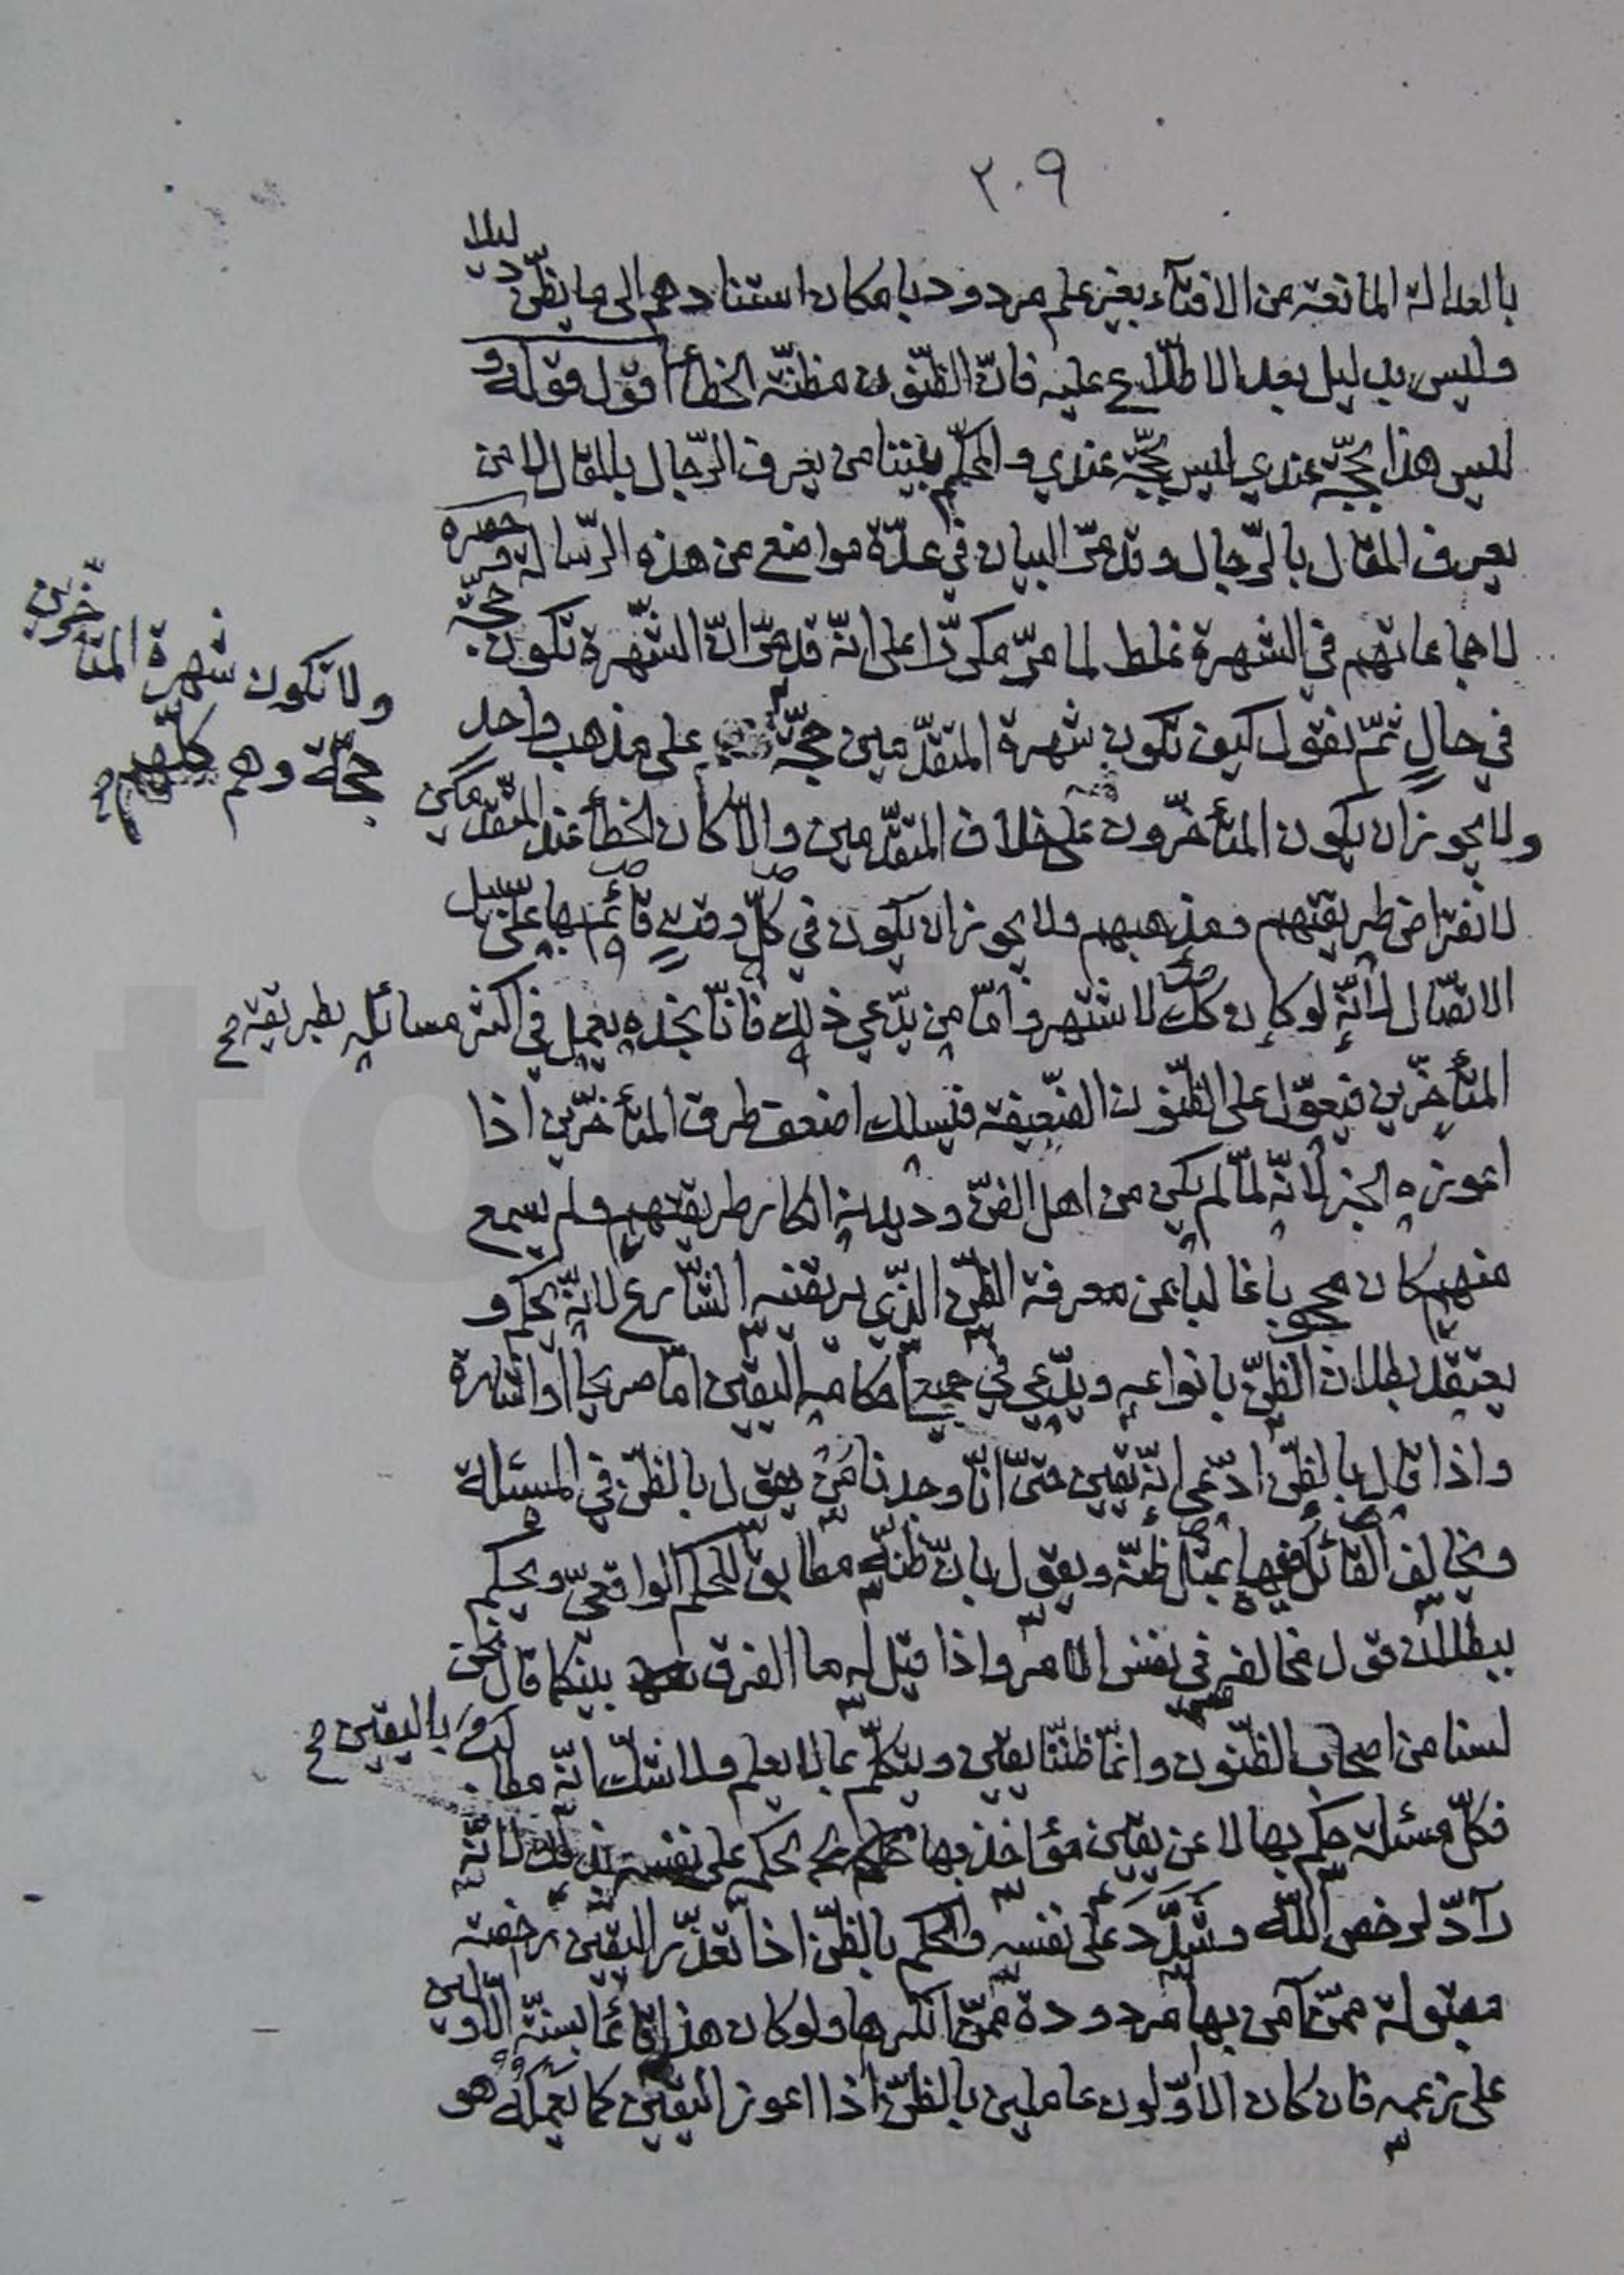 ٢٠٩
بالعدالة المانعة من الافتآء بغير علم مردود بامكان استنادهم الى ما يظنّ دليلا
وليس بدليل بعد الاطّلاع عليه فانّ الظّنون مظنّة الخطأ اقول قوله و
ليس هذا بحجّة عندي ليس بحجّة عندي والمحكّم بيننا من يعرف الرّجال بالمقال لا من
يعرف المقال بالرّجال وقد مرّ البيان في عدّة مواضع من هذه الرّسالة وحصره
لاجماعاتهم في الشهرة غلط لما مرّ مكرّرا على انّه قد مرّ انّ الشّهرة تكون حجّة
في حالٍ ثمّ نقول كيف تكون شهرة المتقدّمين حجّة على مذهب واحد
ولا تكون شهرة المتأخّرين
حجّة وهم كلّهم
ولا يجوز ان يكون المتأخّرون على خلاف المتقدّمين والّا كان الخطأ عند المتقدّمين
لانقراض طريقتهم ومذهبهم ولا يجوز ان يكون في كلّ وقتٍ قائم بها على سبيل
الاتّصال لانّه لو كان كك لاشتهر وامّا من يدّعي ذلك فانّا نجده يعمل في اكثر مسائله بطريقة
المتأخّرين فيعوّل على الظّنون الضّعيفة فيسلك اضعف طرق المتأخّرين اذا
اعوزه الخبر لانّه لمّا لم يكن من اهل الفنّ وديدنه انكار طريقتهم ولم يسمع
منهم كان محجوبا غالبا عن معرفة الظّنّ الذّي يرتضيه الشّارع لانّه يحكم و
يعتقد بطلان الظّنّ بانواعه ويدّعي في جميع احكامه اليقين امّا صريحا او اشارة
واذا قال بالظّنّ ادّعى انّه يقين حتّى انّا وجدنا من يقول بالظّنّ في المسئلة
ويخالف القائل فيها بمثل ظنّه ويقول بانّ ظنّه مطابق للحكم الواقعيّ ويحكم
ببطلان قول مخالفه في نفس الامر واذا قيل له ما الفرق بينكما قال نحن
لسنا من اصحاب الظّنون وانّما ظنّنا يقين ويتكلّم بما لا يعلم ولا شكّ انّه مطالب باليقين
فكلّ مسئلة حكم بها لا عن يقين مؤاخذ بها لحكمه على نفسه بذلك لانّه
رآدّ لرخص اللّه وشدّد على نفسه والحكم بالظّنّ اذا تعذّر اليقين رخصة
مقبولة ممّن آمن بها مردودة ممّن انكرها ولو كان هذا قائما بسنّة الاوّلين
على زعمه فان كان الاوّلون عاملين بالظّنّ اذا اعوز اليقين كما يعمله هو